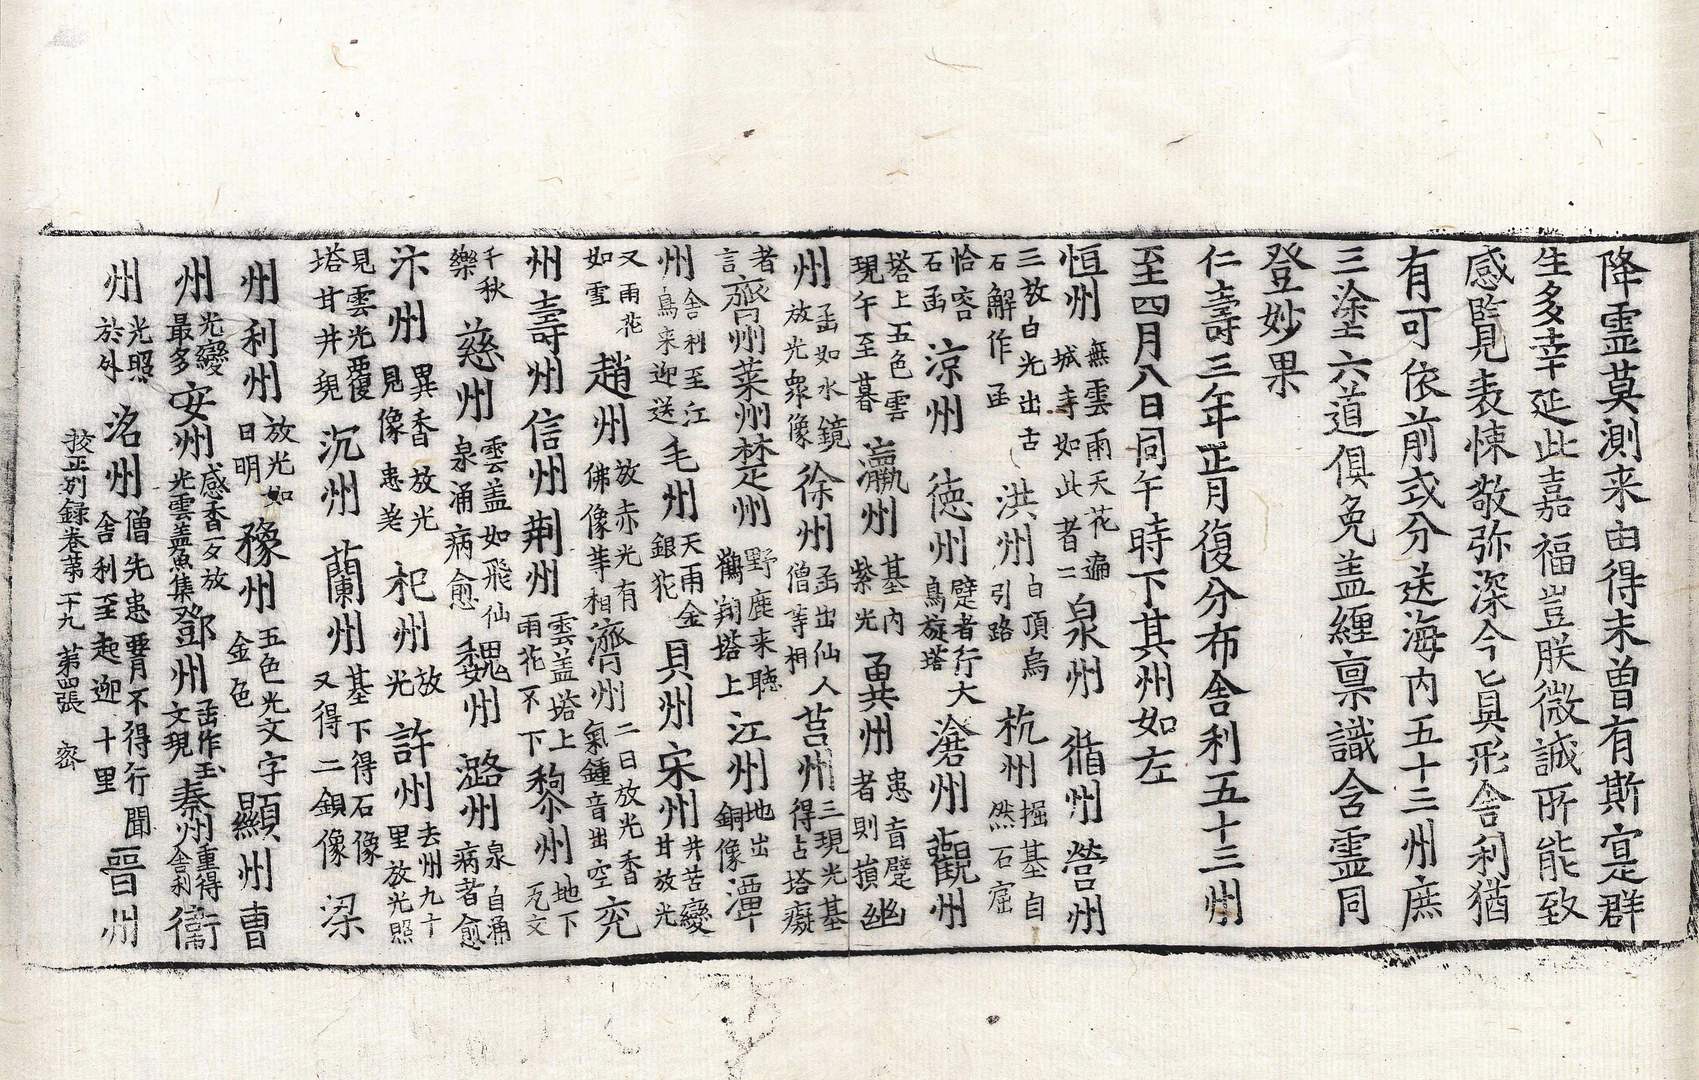 降霊莫測来由得未曽有斯寔群
生多幸延此嘉福豈朕微誠所能致
感覧表悚敬弥深今匕真形舎利猶
有可依前式分送海内五十三州庶
三塗六道俱免盖纏禀識含霊同
登妙果
仁壽三年正月復分布舎利五十三州
至四月八日同午時下其州如左
恒州無雲雨天花遍城寺如此者二泉州循州營州
三放白光出古石解作函洪州白頂烏引路杭州掘基自然石窟
恰容石函涼州徳州躄者行大鳥旋塔滄州觀州
塔上五色雲現午至暮瀛州基内紫光冀州患盲躄者則損幽
州函如水鏡放光衆像徐州函出仙人僧等相莒州三現光基得古塔癡
者言齊州莱州楚州野鹿来聽鶴翔塔上江州地出銅像潭
州舎利至江鳥来迎送毛州天雨金銀花貝州宋州井苦變甘放光
又雨花如雪趙州放赤光有佛像等相濟州二日放光香氣鍾音出空兖
州壽州信州荆州雲盖塔上雨花不下黎州地下瓦文
千秋樂慈州雲盖如飛仙泉涌病愈魏州潞州泉自涌病者愈
汴州異香放光見像患差杞州放光許州去州九十里放光照
見雲光覆塔甘井現沉州蘭州基下得石像又得二銀像梁
州利州放光如日明豫州五色光文字金色顯州曹
州光變最多安州感香一女放光雲盖魚集鄧州函作玉文現秦州重得舎利衞
州光照於外洺州僧先患腰不得行聞舎利至起迎十里晉州
校正别録巻第二十九 第四張 宻